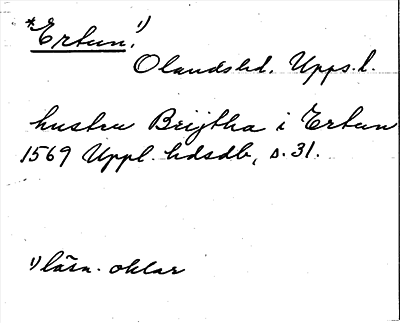 *Ertun.¹⁾
Olandshd. Upps.l.
hustru Brijtha i Ertun
1569 Uppl. hdsdb, s. 31.
¹⁾ läsn. oklar